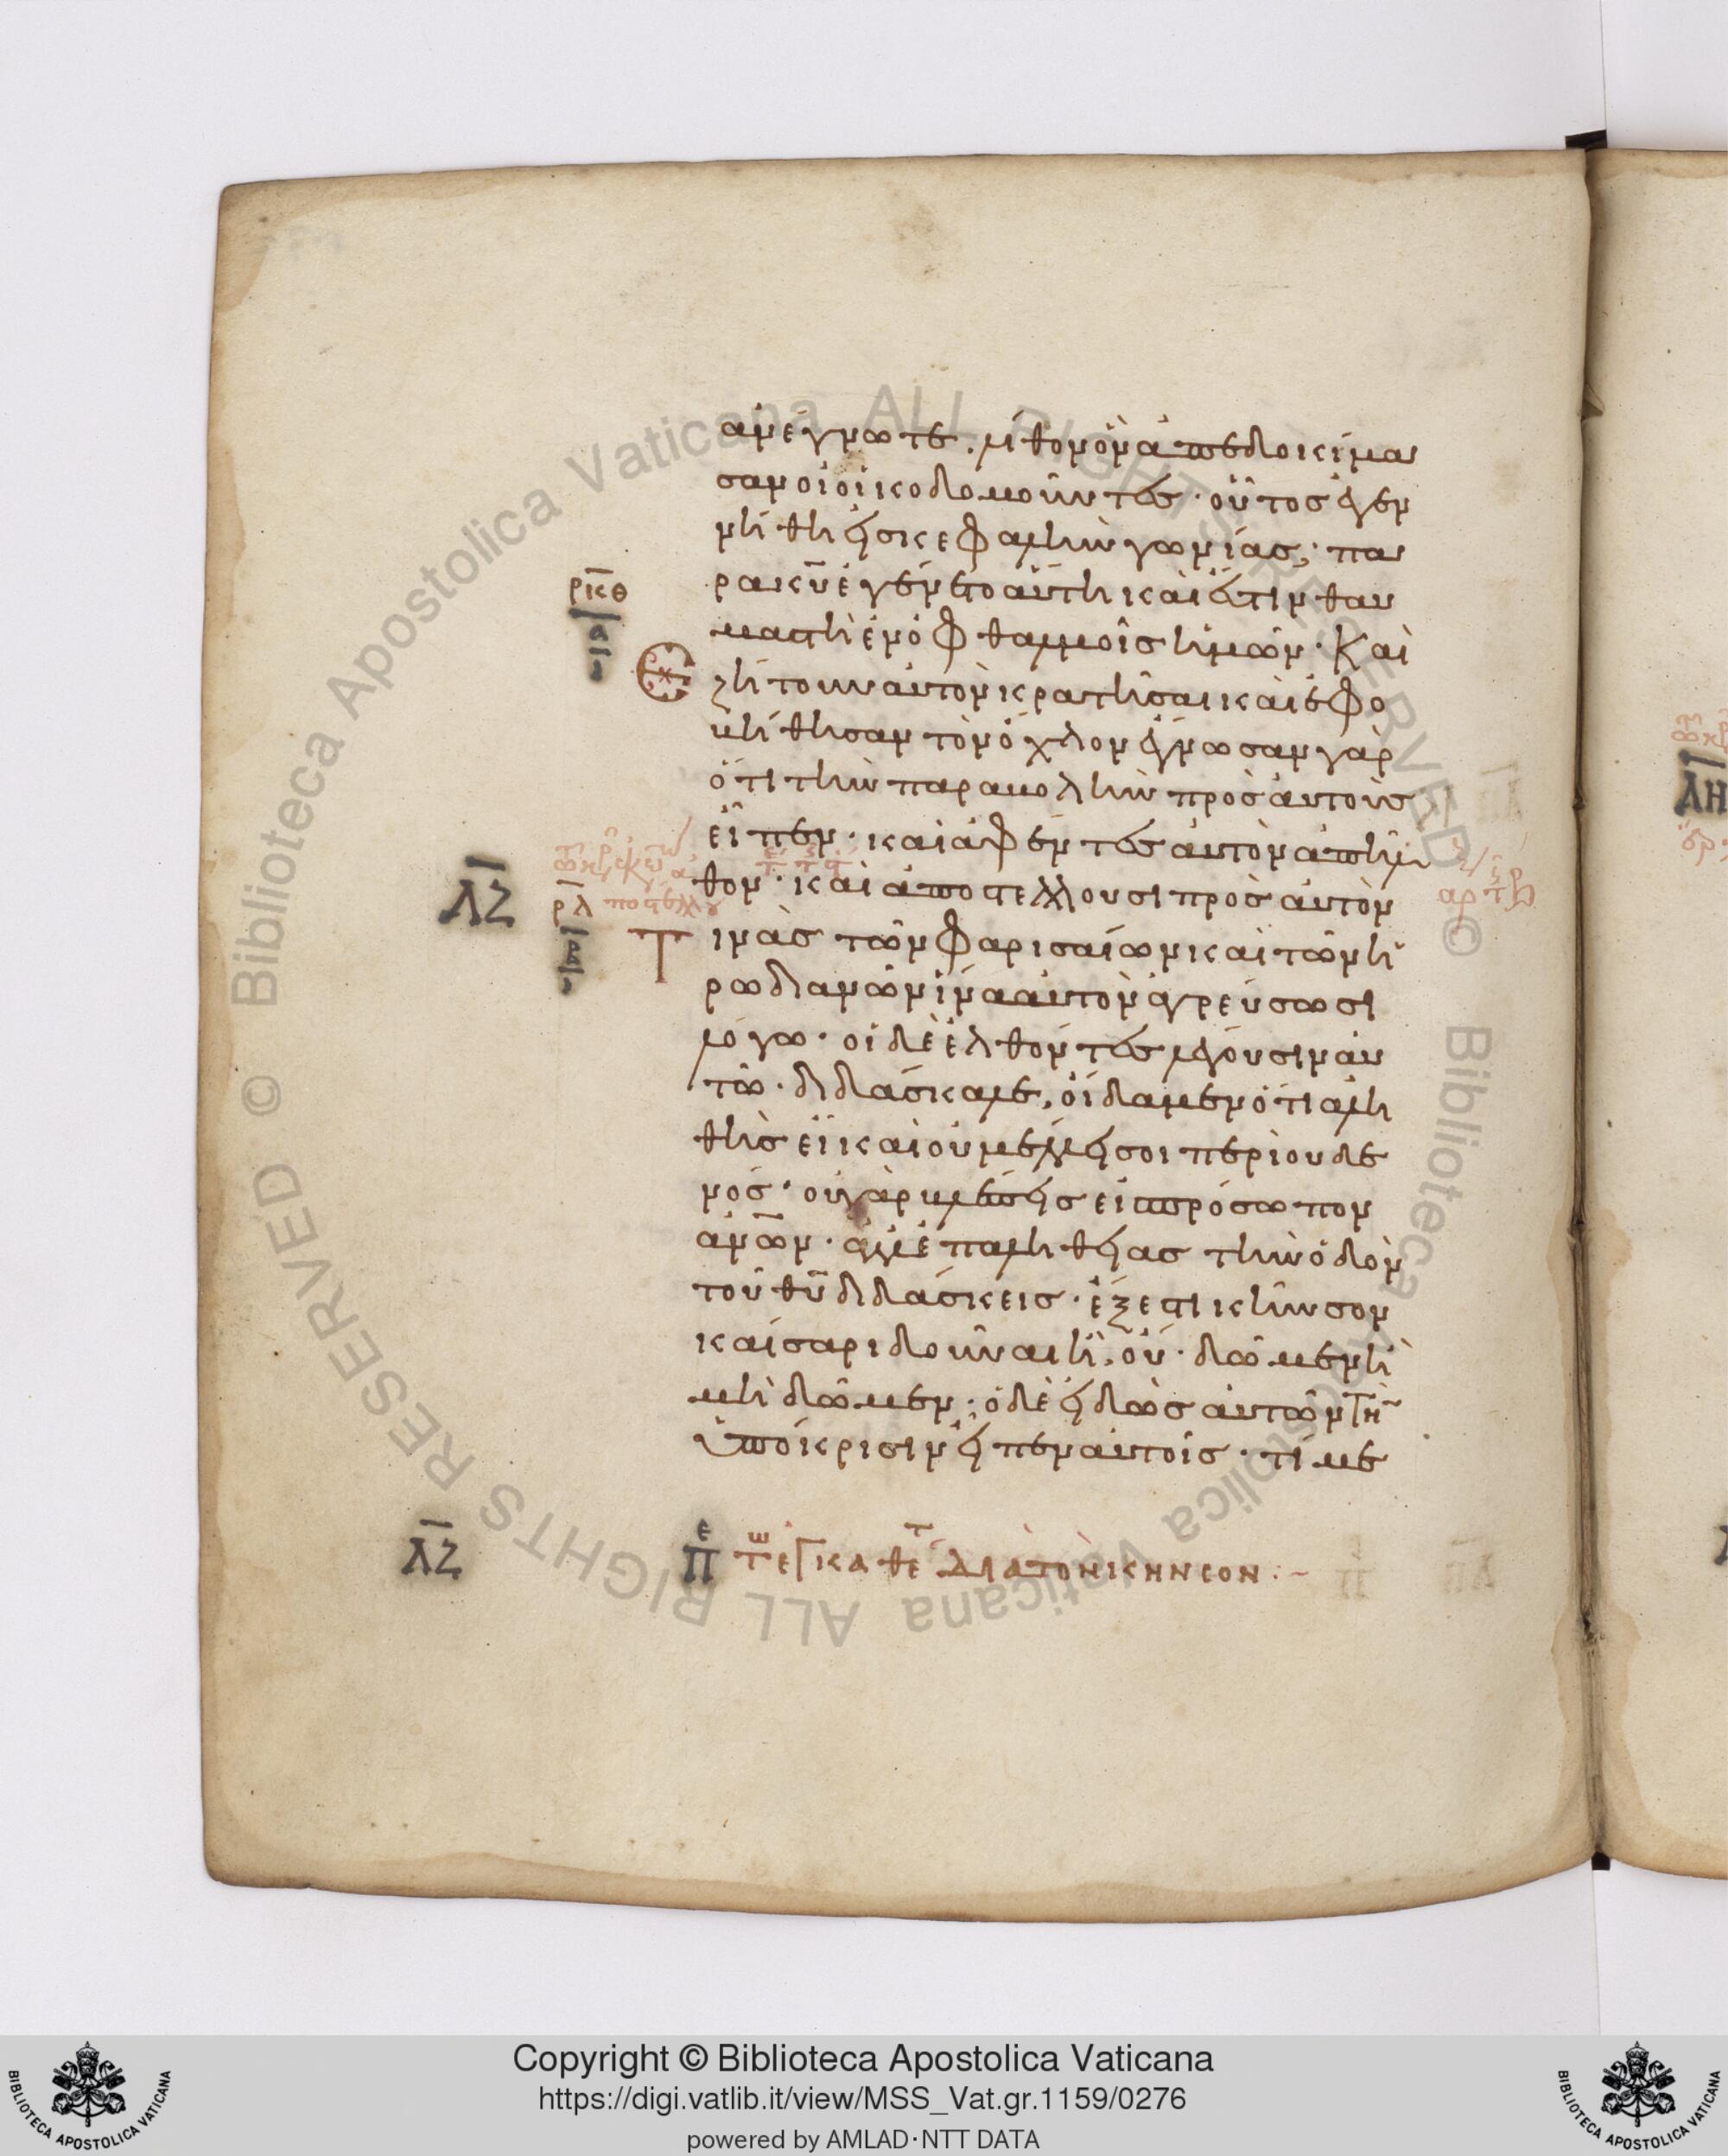 ἀνέγνωτε. λίθον ὃν ἀπεδοκίμα
σαν οἱ οἰκοδομοῦντες· οὗτος ἐγεν
νήθη εἰς κεφαλὴν γωνίας· πα
ρὰ κ̅υ̅ ἐγένετο αὕτη καὶ ἔστιν θαυ
ρκθ
μαστὴ ἐν ὀφθαλμοῖς ἡμῶν· Καὶ
α
ἐζήτουν αὐτὸν κρατῆσαι καὶ ἐφο
βήθησαν τὸν ὄχλον ἔγνωσαν γὰρ
ὅτι τὴν παραβολὴν πρὸς αὐτοὺς
εἶπεν· καὶ ἀφέντες αὐτὸν ἀπῆλ
ΛΖ
ρλ
θον· καὶ ἀποστέλλουσι πρὸς αὐτὸν
β
Τινὰς τῶν φαρισαίων καὶ τῶν ἡ
ρωδιανῶν ἵνα αὐτὸν ἀγρεύσωσι
λόγω· οἱ δὲ ἐλθόντες λέγουσιν αὐ
τῶ· διδάσκαλε, οἴδαμεν ὅτι ἀλη
θὴς εἶ καὶ οὐ μέλλει σοι περὶ οὐδε
νός· οὐ γὰρ βλέπεις εἰς πρόσωπον
ἀν̅ω̅ν· ἀλλ' ἐπ' ἀληθείας τὴν ὁδὸν
τοῦ θ̅υ̅ διδάσκεις· ἔξεστι κῆνσον
καίσαρι δοῦναι ἢ οὔ· δῶμεν ἢ
μὴ δῶμεν· ὁ δὲ εἰδὼς αὐτῶν τὴν
ὑπόκρισιν εἶπεν αὐτοῖς· τί με
ΛΖ
Περὶ τῶν ἐγκαθέτων διὰ τὸν κῆνσον:~
Copyright © Biblioteca Apostolica Vaticana
https://digi.vatlib.it/view/MSS_Vat.gr.1159/0276
powered by AMLAD·NTT DATA
BIBLIOTECA APOSTOLICA VATICANA
BIBLIOTECA APOSTOLICA VATICANA